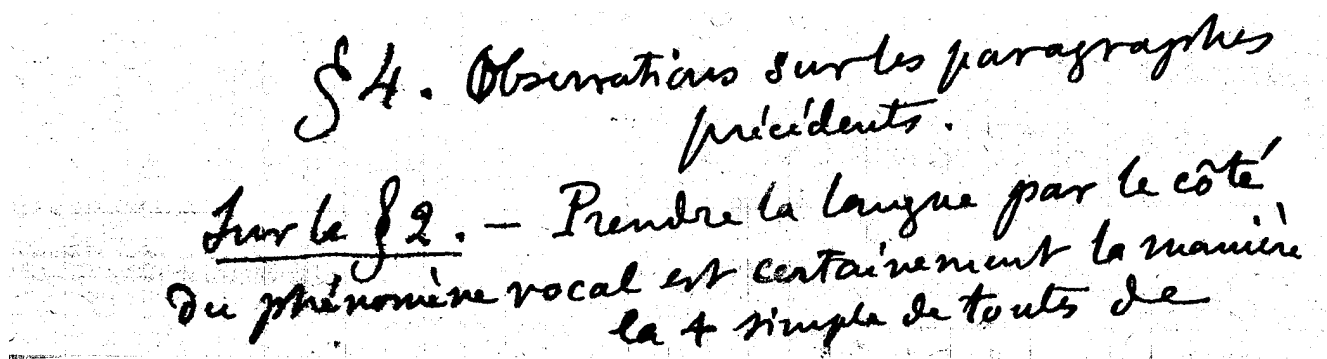 § 4. Observations sur les paragraphes
précédents.
Sur le § 2. – Prendre la langue par le côté
du phénomène vocal est certainement la manière
la + simple de toutes de